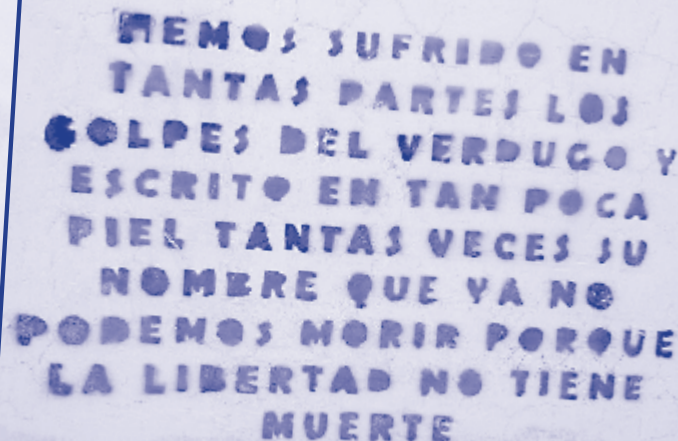 HEMOS SUFRIDO EN
TANTAS PARTES LOS
GOLPES DEL VERDUGO Y
ESCRITO EN TAN POCA
PIEL TANTAS VECES SU
NOMBRE QUE YA NO
PODEMOS MORIR PORQUE
LA LIBERTAD NO TIENE
MUERTE